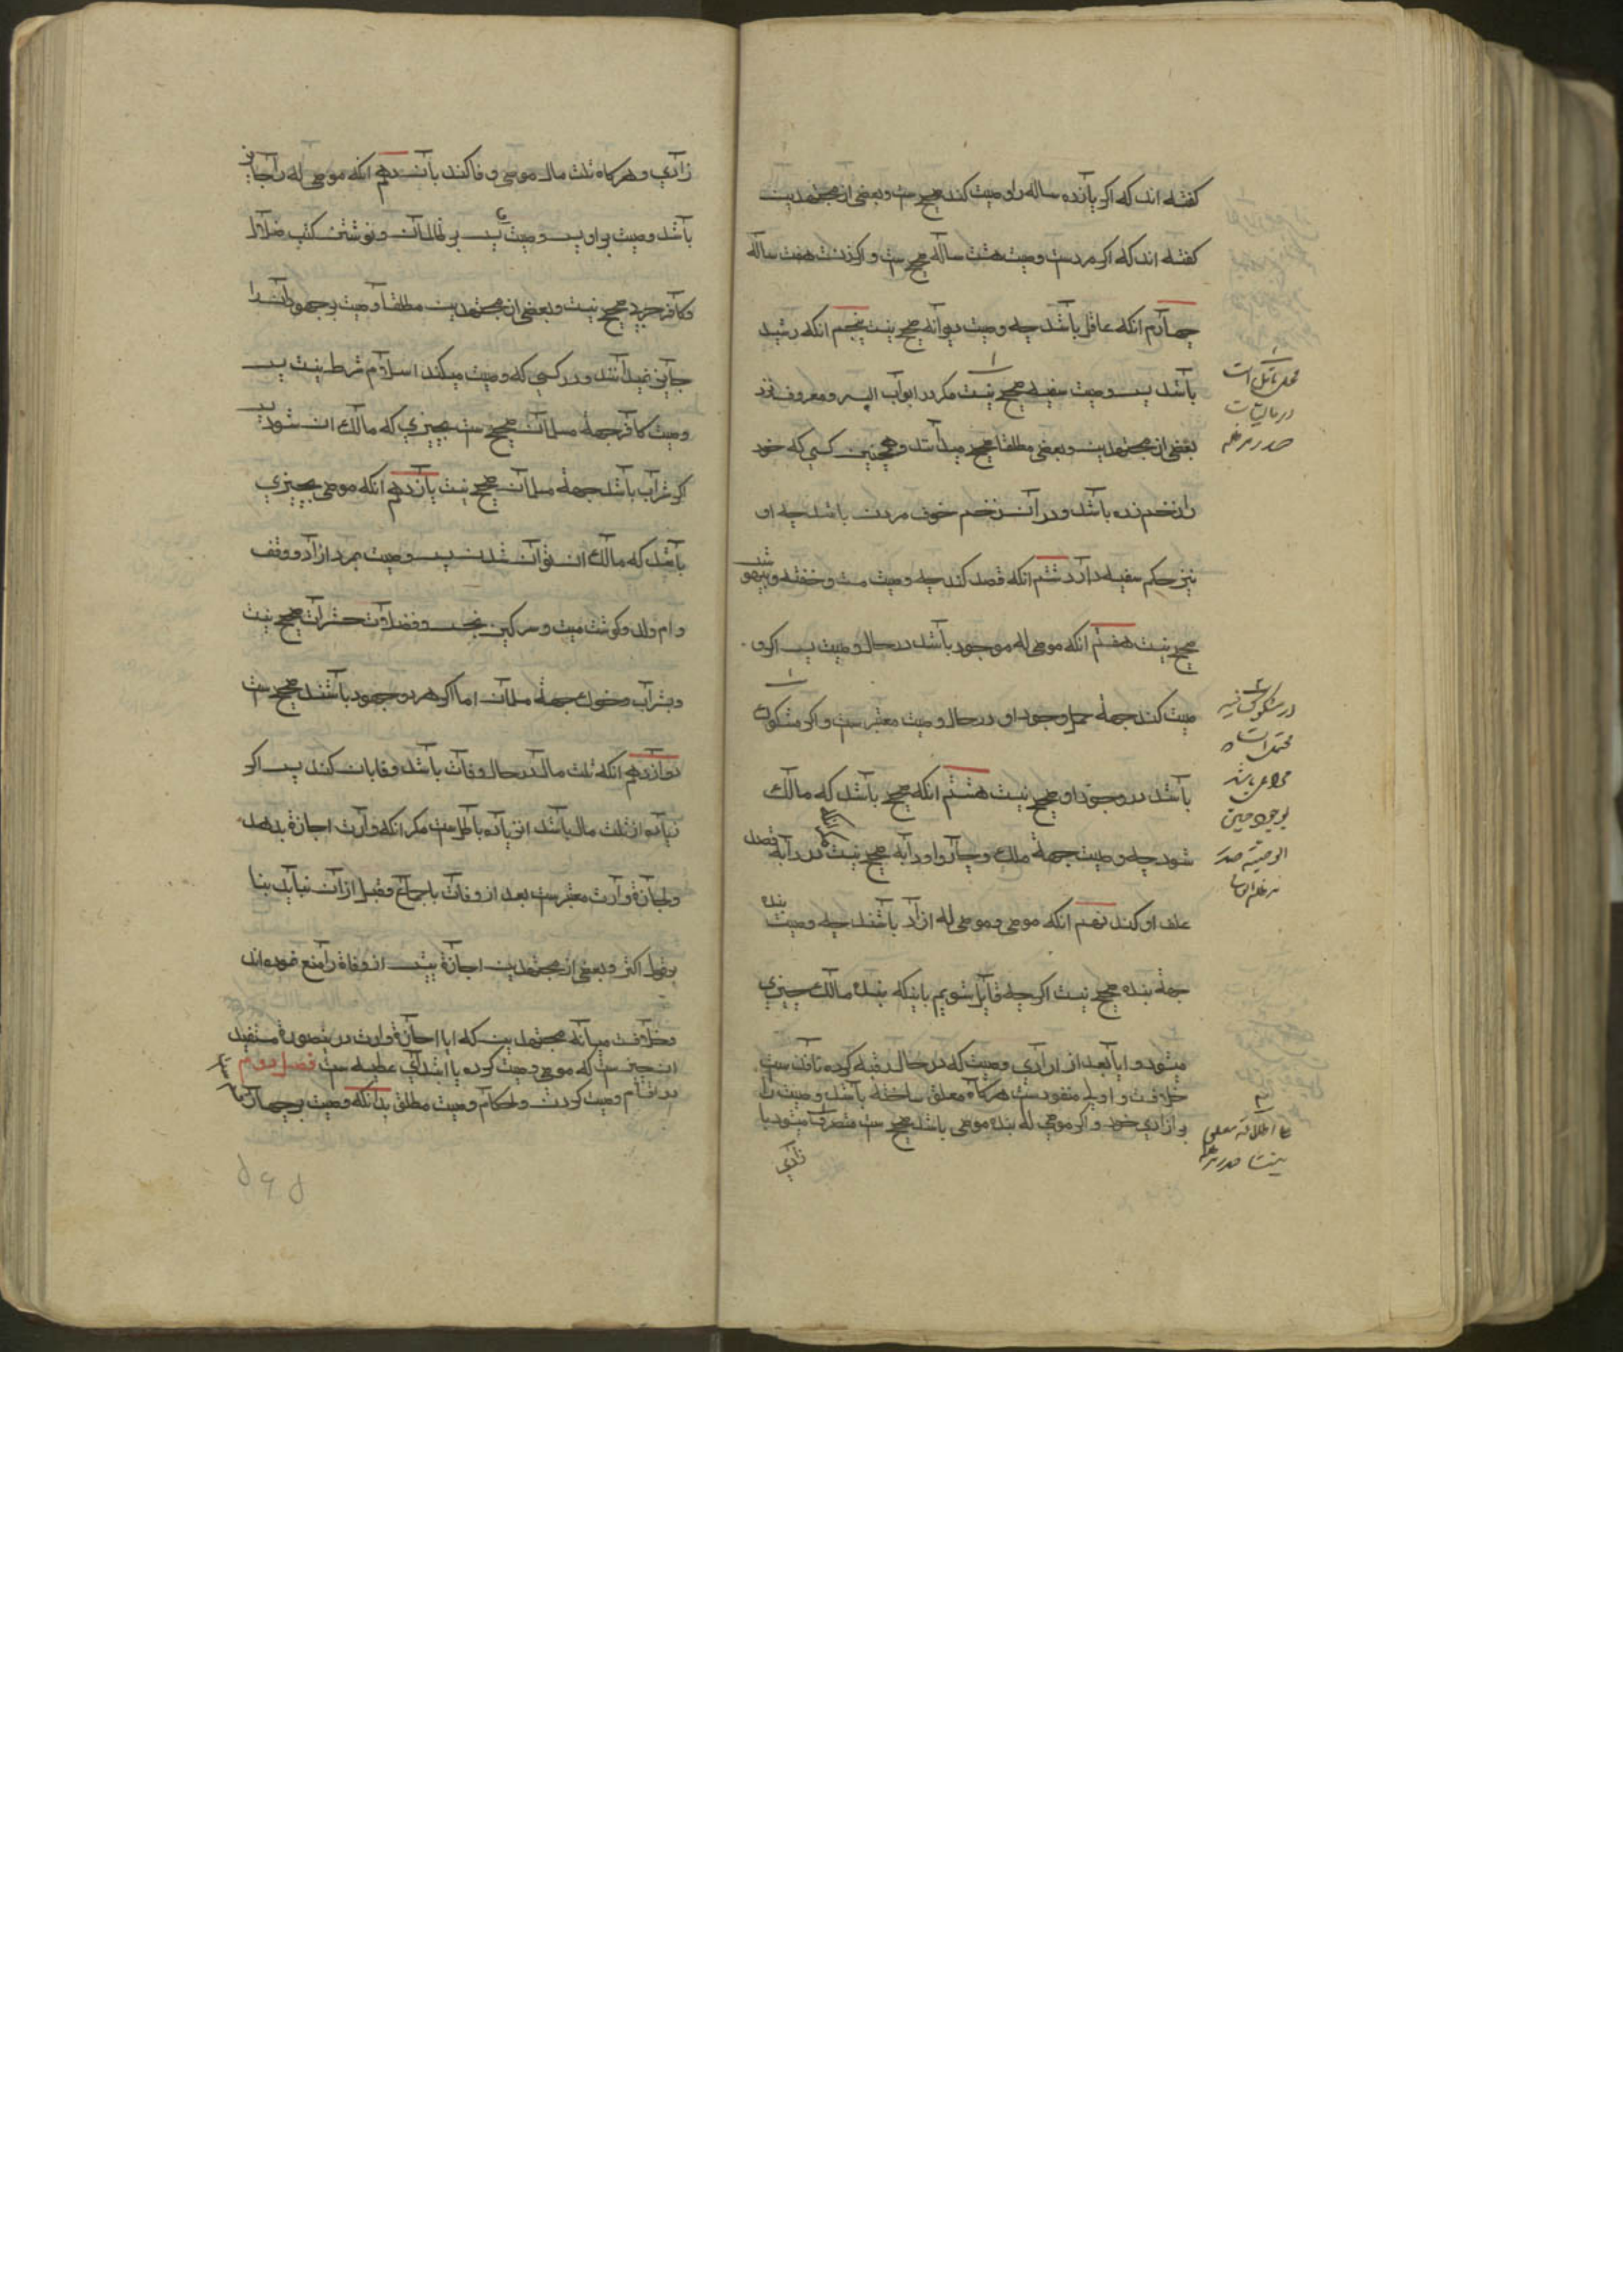 گفته اند که اگر یازده ساله را وصیت کند صحیح ست و بعضی از مجتهدین
گفته اند که اگر مردست وصیت هشت ساله صحیح ست و اگر زنست هفت ساله
چهارم انکه عاقل باشد چه وصیت دیوانه صحیح نیست پنجم انکه رشید
باشد پس وصیت سفیه صحیح نیست مگر در ابواب البر و معروف نزد
بعضی از مجتهدین و بعضی مطلقا صحیح میدانند و همچنین کسی که خود
را زخم زده باشد و در آن زخم خوف مردن باشد چه او
نیز حکم سفیه دارد ششم انکه قصد کند چه وصیت مست و خفته و بیهوش
صحیح نیست هفتم انکه موصی له موجود باشد در حال وصیت پس اگر و
میت کند جههٔ حمل وجود او در حال وصیت معتبر ست و اگر مشکوک
باشد در وجود او صحیح نیست هشتم انکه صحیح باشد که مالک
شود چه وصیت جههٔ ملک و چاروا و رابه صحیح نیست در رابه قصد
علف او کند نهم انکه موصی و موصی له ازاد باشند چه وصیت بنده
جههٔ بنده صحیح نیست اگرچه قایل شویم باینکه بنده مالک چیزی
میشود و ایا بعد از ازادی وصیت که در حال رقیه کرده نافذ ست
خلافست و اولی منفوذست هرگاه معلق ساخته باشد وصیت را
بر ازادی خود و اگر موصی له بنده موصی باشد صحیح ست متصرف میشود با
زادی
محل تامل است
در مالیات
صدر مد ظله
در مشکوک
صحیح است
باشد
بوجود حین
الوصیة صدر
مد ظله
زادی و هرگاه ثلث مال موصی وفا کند بآن دهم انکه موصی له را جایز
باشد وصیت بر او پس وصیت بر ظالمان و نوشتن کتب ضلال
و کافر حربی صحیح نیست و بعضی از مجتهدین مطلقا وصیت بر جهودان را
جایز نمیدانند و در کسی که وصیت میکند اسلام شرط نیست پس
وصیت کافر جههٔ مسلمان صحیح ست بچیزی که مالک ان شود پس
اگر شراب باشد جههٔ مسلمان صحیح نیست یازدهم انکه موصی به چیزی
باشد که مالک ان توان شدن پس وصیت بمرد ازاد و وقف
و ام ولد و گوشت میت و سرگین نجس و فضلات حشرات صحیح نیست
و بشراب و خوک جههٔ مسلمان اما اگر هر دو جهود باشند صحیح ست
دوازدهم انکه ثلث مال در حال وفات باشد وفا بان کند پس اگر
زیاده از ثلث مال باشد ان زیاده باطل ست مگر انکه وارث اجازه بدهد
و اجازهٔ وارث معتبر ست بعد از وفات باجماع و قبل از آن نیابد بنا
بر قول اکثر و بعضی از مجتهدین اجازهٔ پیش از وفاة را منع نموده اند
و خلافست میانه مجتهدین که ایا اجازهٔ وارث در ینصورة مستفید
ان چیز ست که موصی وصیت کرده یا ابتدای عطیه ست فصل دوم
در اقسام وصیت کردن و احکام وصیت مطلق بدانکه وصیت بر چهار